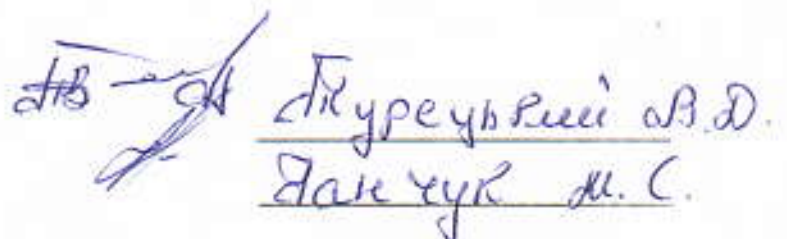 Турецький В.Д.
Панчук М.С.